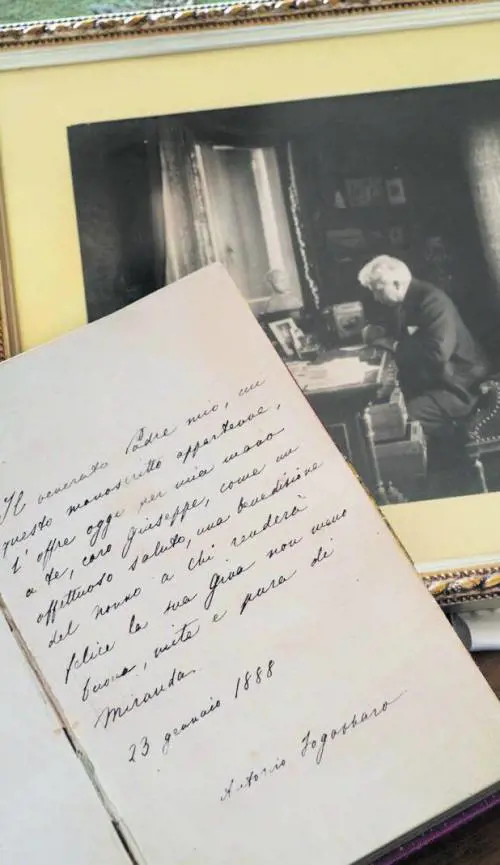 Il venerato Padre mio, cui
questo manoscritto appartenne,
l'offre oggi per mia mano
a te, caro Giuseppe, come un
affettuoso saluto, una benedizione
del nonno a chi renderà
felice la sua Gina non meno
buona, mite e pura di
Miranda.
23 gennaio 1888
Antonio Fogazzaro